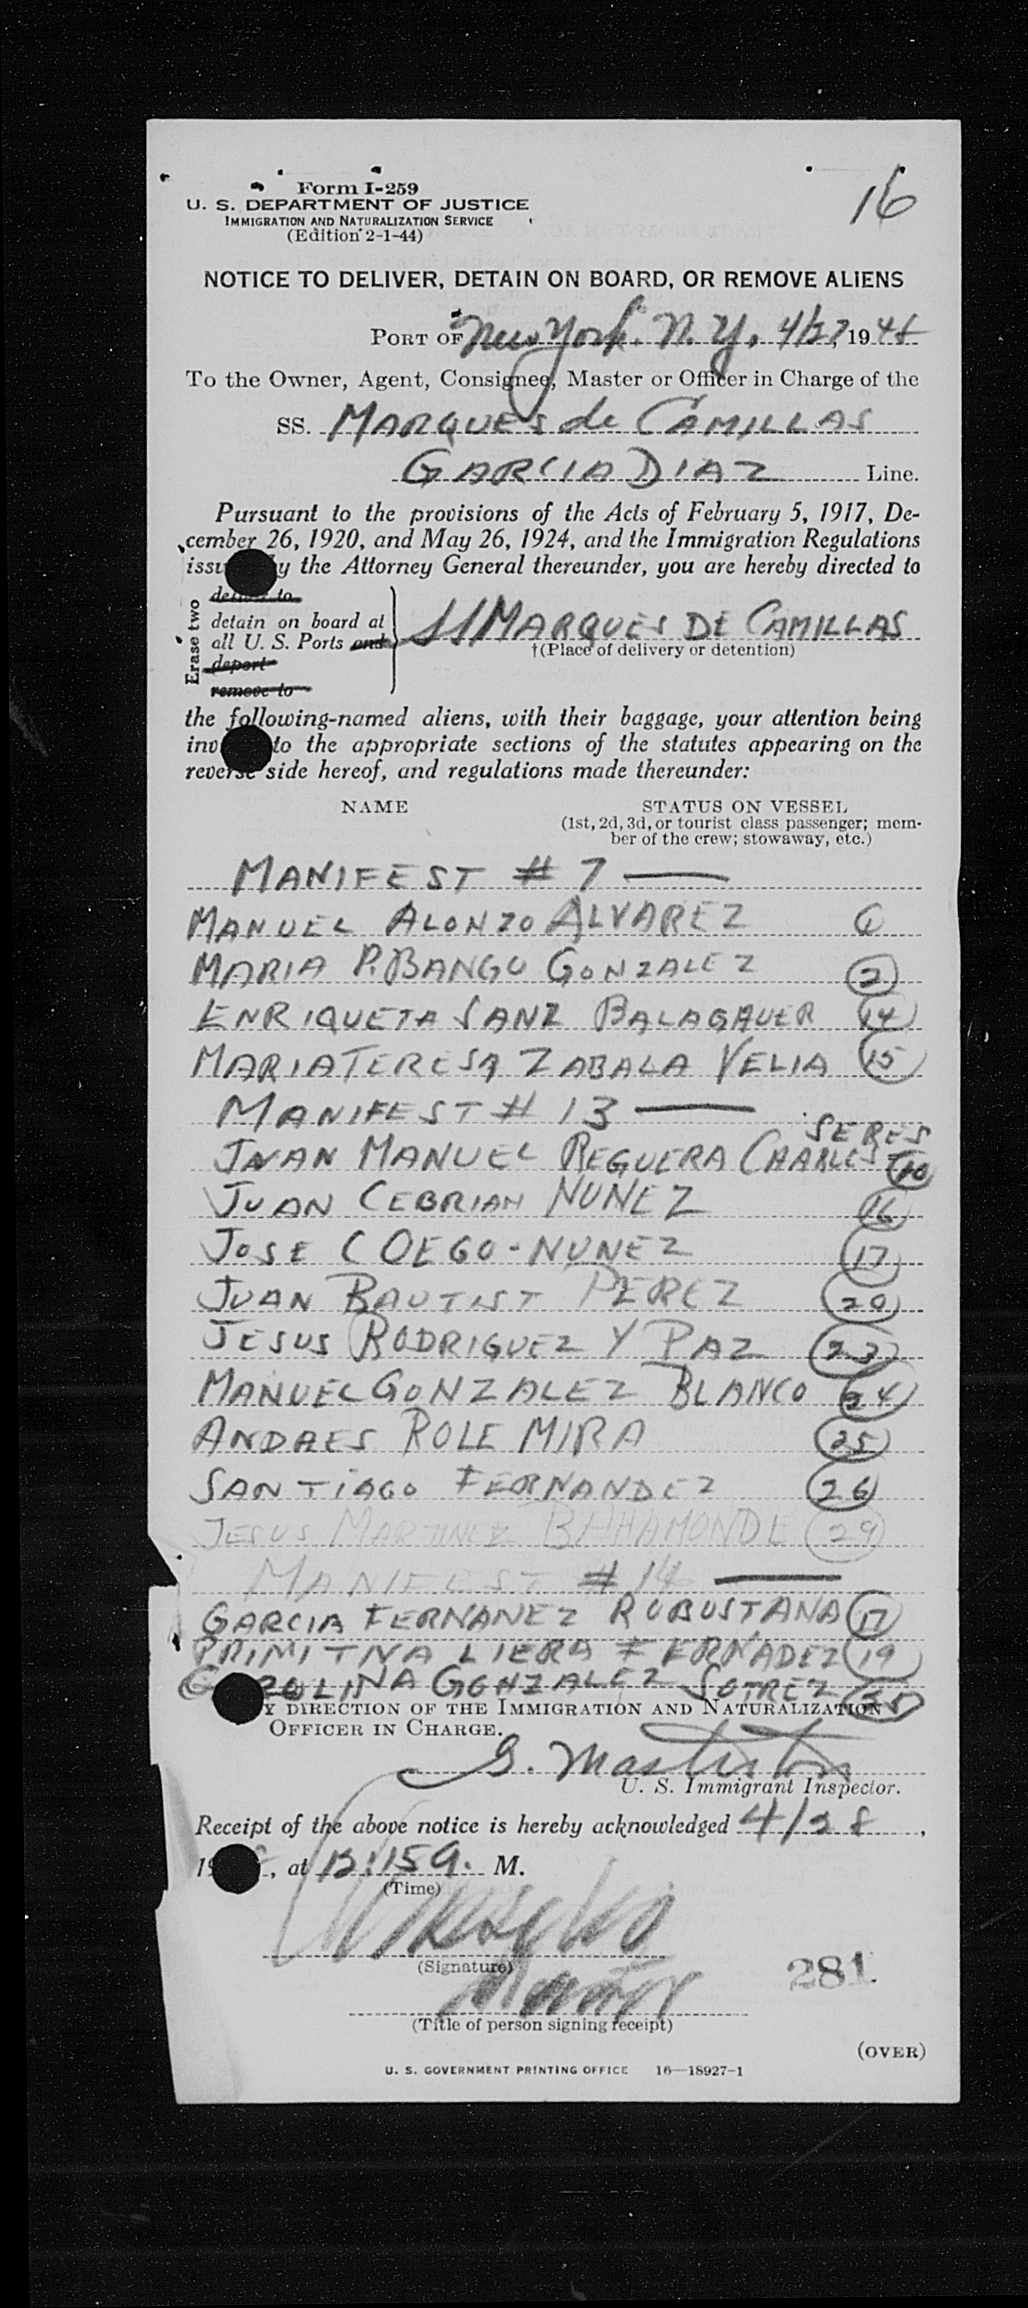 16
Form I-259
U. S. DEPARTMENT OF JUSTICE
IMMIGRATION AND NATURALIZATION SERVICE
(Edition 2-1-44)
NOTICE TO DELIVER, DETAIN ON BOARD, OR REMOVE ALIENS
PORT OF New York. N. Y, 4/27, 194
To the Owner, Agent, Consignee, Master or Officer in Charge of the
SS. MARQUES de CAMILLAS
GARCIA DIAZ Line.
Pursuant to the provisions of the Acts of February 5, 1917, De-
cember 26, 1920, and May 26, 1924, and the Immigration Regulations
issu y the Attorney General thereunder, you are hereby directed to
Erase two
deliver to
detain on board at
all U. S. Ports and
deport
remove to
SS MARQUES DE CAMILLAS
†(Place of delivery or detention)
the following-named aliens, with their baggage, your attention being
inv to the appropriate sections of the statutes appearing on the
reverse side hereof, and regulations made thereunder:
NAME STATUS ON VESSEL
(1st, 2d, 3d, or tourist class passenger; mem-
ber of the crew; stowaway, etc.)
MANIFEST # 7 —
MANUEL ALONZO ALVAREZ
MARIA P. BANGO GONZALEZ 2
ENRIQUETA SANZ BALAGAUER 14
MARIA TERESA ZABALA VELIA 15
MANIFEST # 13 —
SERES
JUAN MANUEL REGUERA CHARLES 10
JUAN CEBRIAN NUNEZ 16
JOSE COEGO-NUNEZ 17
JUAN BAUTIST PEREZ 20
JESUS RODRIGUEZ Y PAZ 23
MANUEL GONZALEZ BLANCO 24
ANDRES ROLE MIRA 25
SANTIAGO FERNANDEZ 26
JESUS MARTINEZ BAHAMONDE 29
MANIFEST # 14 —
GARCIA FERNANEZ ROBUSTANA 17
PRIMITNA LIERA FERNADEZ 19
GONZALEZ SOTREZ 35
Y DIRECTION OF THE IMMIGRATION AND NATURALIZATION
OFFICER IN CHARGE.
G.
U. S. Immigrant Inspector.
Receipt of the above notice is hereby acknowledged 4/28,
19 , at 12:15 A. M.
(Time)
(Signature)
281
(Title of person signing receipt)
(OVER)
U. S. GOVERNMENT PRINTING OFFICE 16—18927-1